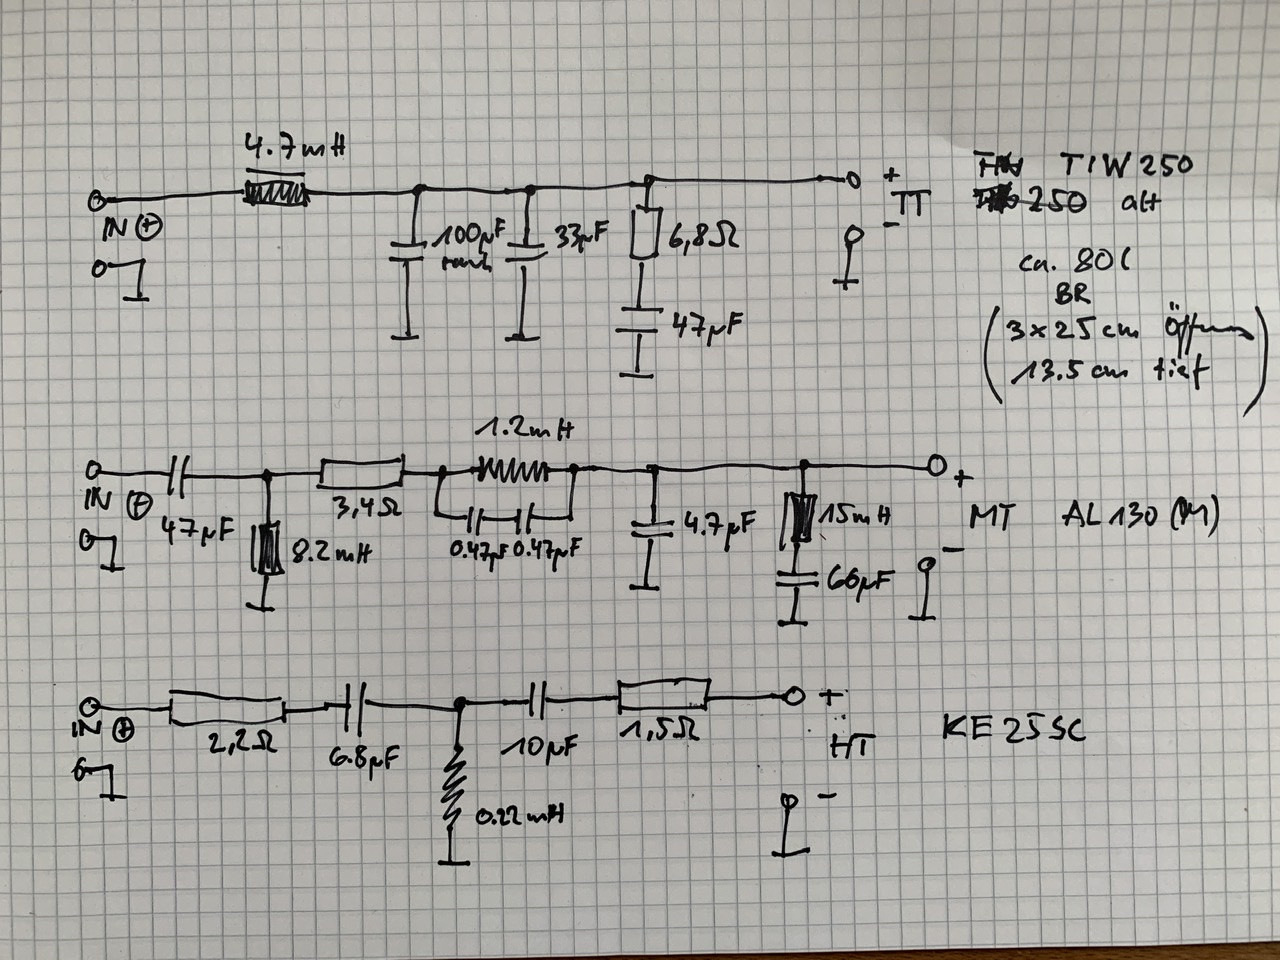 4.7mH
TIW 250
250 alt
IN ⊕
100µF
33µF
6,8Ω
+
TT
-
ca. 80l
BR
47µF
(3 x 25 cm
13.5 cm tief)
1.2mH
IN ⊕
47µF
3,4Ω
8.2mH
0.47µF 0.47µF
4.7µF
15mH
+
MT AL 130 (M)
66µF
-
IN ⊕
2,2Ω
6.8µF
10µF
1,5Ω
+
HT
KE 25 SC
0.22mH
-